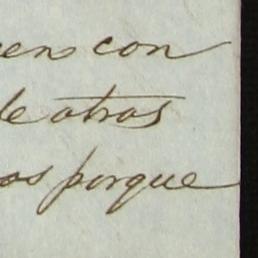 en con
de otros
os porque